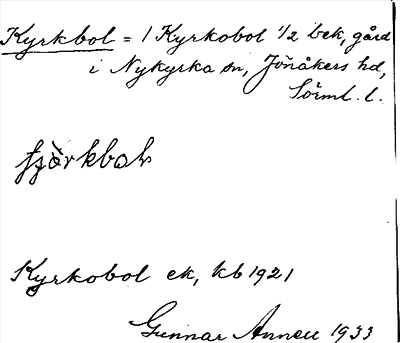 Kyrkbol = 1 Kyrkobol 1/2 bek, gård
i Nykyrka sn, Jönåkers hd,
Sörml. l.
Kyrkobol ek, kb 1921
Gunnar Annell 1933